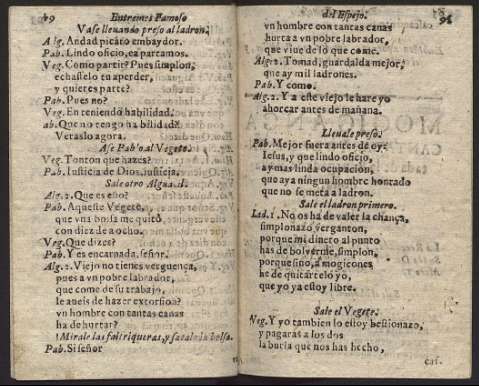 Entremes Famoso
Vase lleuando preso al ladron.
Alg. Andad picaro embaydor.
Pab. Lindo oficio, ea partamos.
Veg. Como partir? Pues simplon,
echastelo tu a perder,
y quieres parte?
Pab. Pues no?
Veg. En teniendo habilidad.
ab. Que no tengo habilidad?
Veraslo agora.
Ase Pablo al Vegete.
Veg. Tonton que hazes?
Pab. Iusticia de Dios, iusticia.
Sale otro Algua.il.
Alg. 2. Que es esto?
Pab. Aqueste Vegete,
que vna bolsa me quitò
con diez de a ocho.
Veg. Que dizes?
Pab. Y es encarnada, señor.
Alg. 2. Viejo no tienes verguença,
pues a vn pobre labrador,
que come de su trabajo,
le aueis de hazer extorsion?
vn hombre con tantas canas
ha de hurtar?
Mirale las faltriqueras, y sacale la bolsa.
Pab. Si señor
del Espejo.
vn hombre con tantas canas
hurta a vn pobre labrador,
que viue de lo que come.
Alg. 2. Tomad, guardalda mejor,
que ay mil ladrones.
Pab. Y como.
Alg. 2. Y a este viejo le hare yo
ahorcar antes de mañana.
Lleuale preso.
Pab. Mejor fuera antes de oy:
Iesus, y que lindo oficio,
ay mas linda ocupacion,
que aya ningun hombre honrado
que no se meta a ladron.
Sale el ladron primero.
Lad. 1. No os ha de valer la chança,
simplonazo verganton,
porque mi dinero al punto
has de bolverme, simplon,
porque sino, a mogicones
he de quitartelo yo,
que yo ya estoy libre.
Sale el Vegete.
Veg. Y yo tambien lo estoy bestionazo,
y pagaràs a los dos
la burla que nos has hecho,